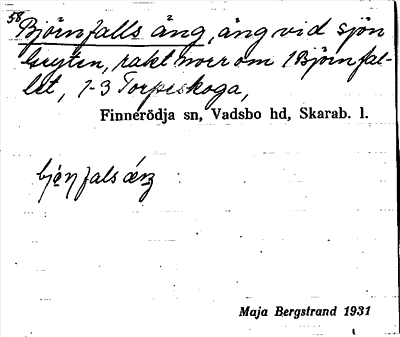 58 Björnfalls äng, äng vid sjön
Unden, rakt norr om 1 Björnfal-
let, 1-3 Torpeskoga,
Finnerödja sn, Vadsbo hd, Skarab. l.
Maja Bergstrand 1931